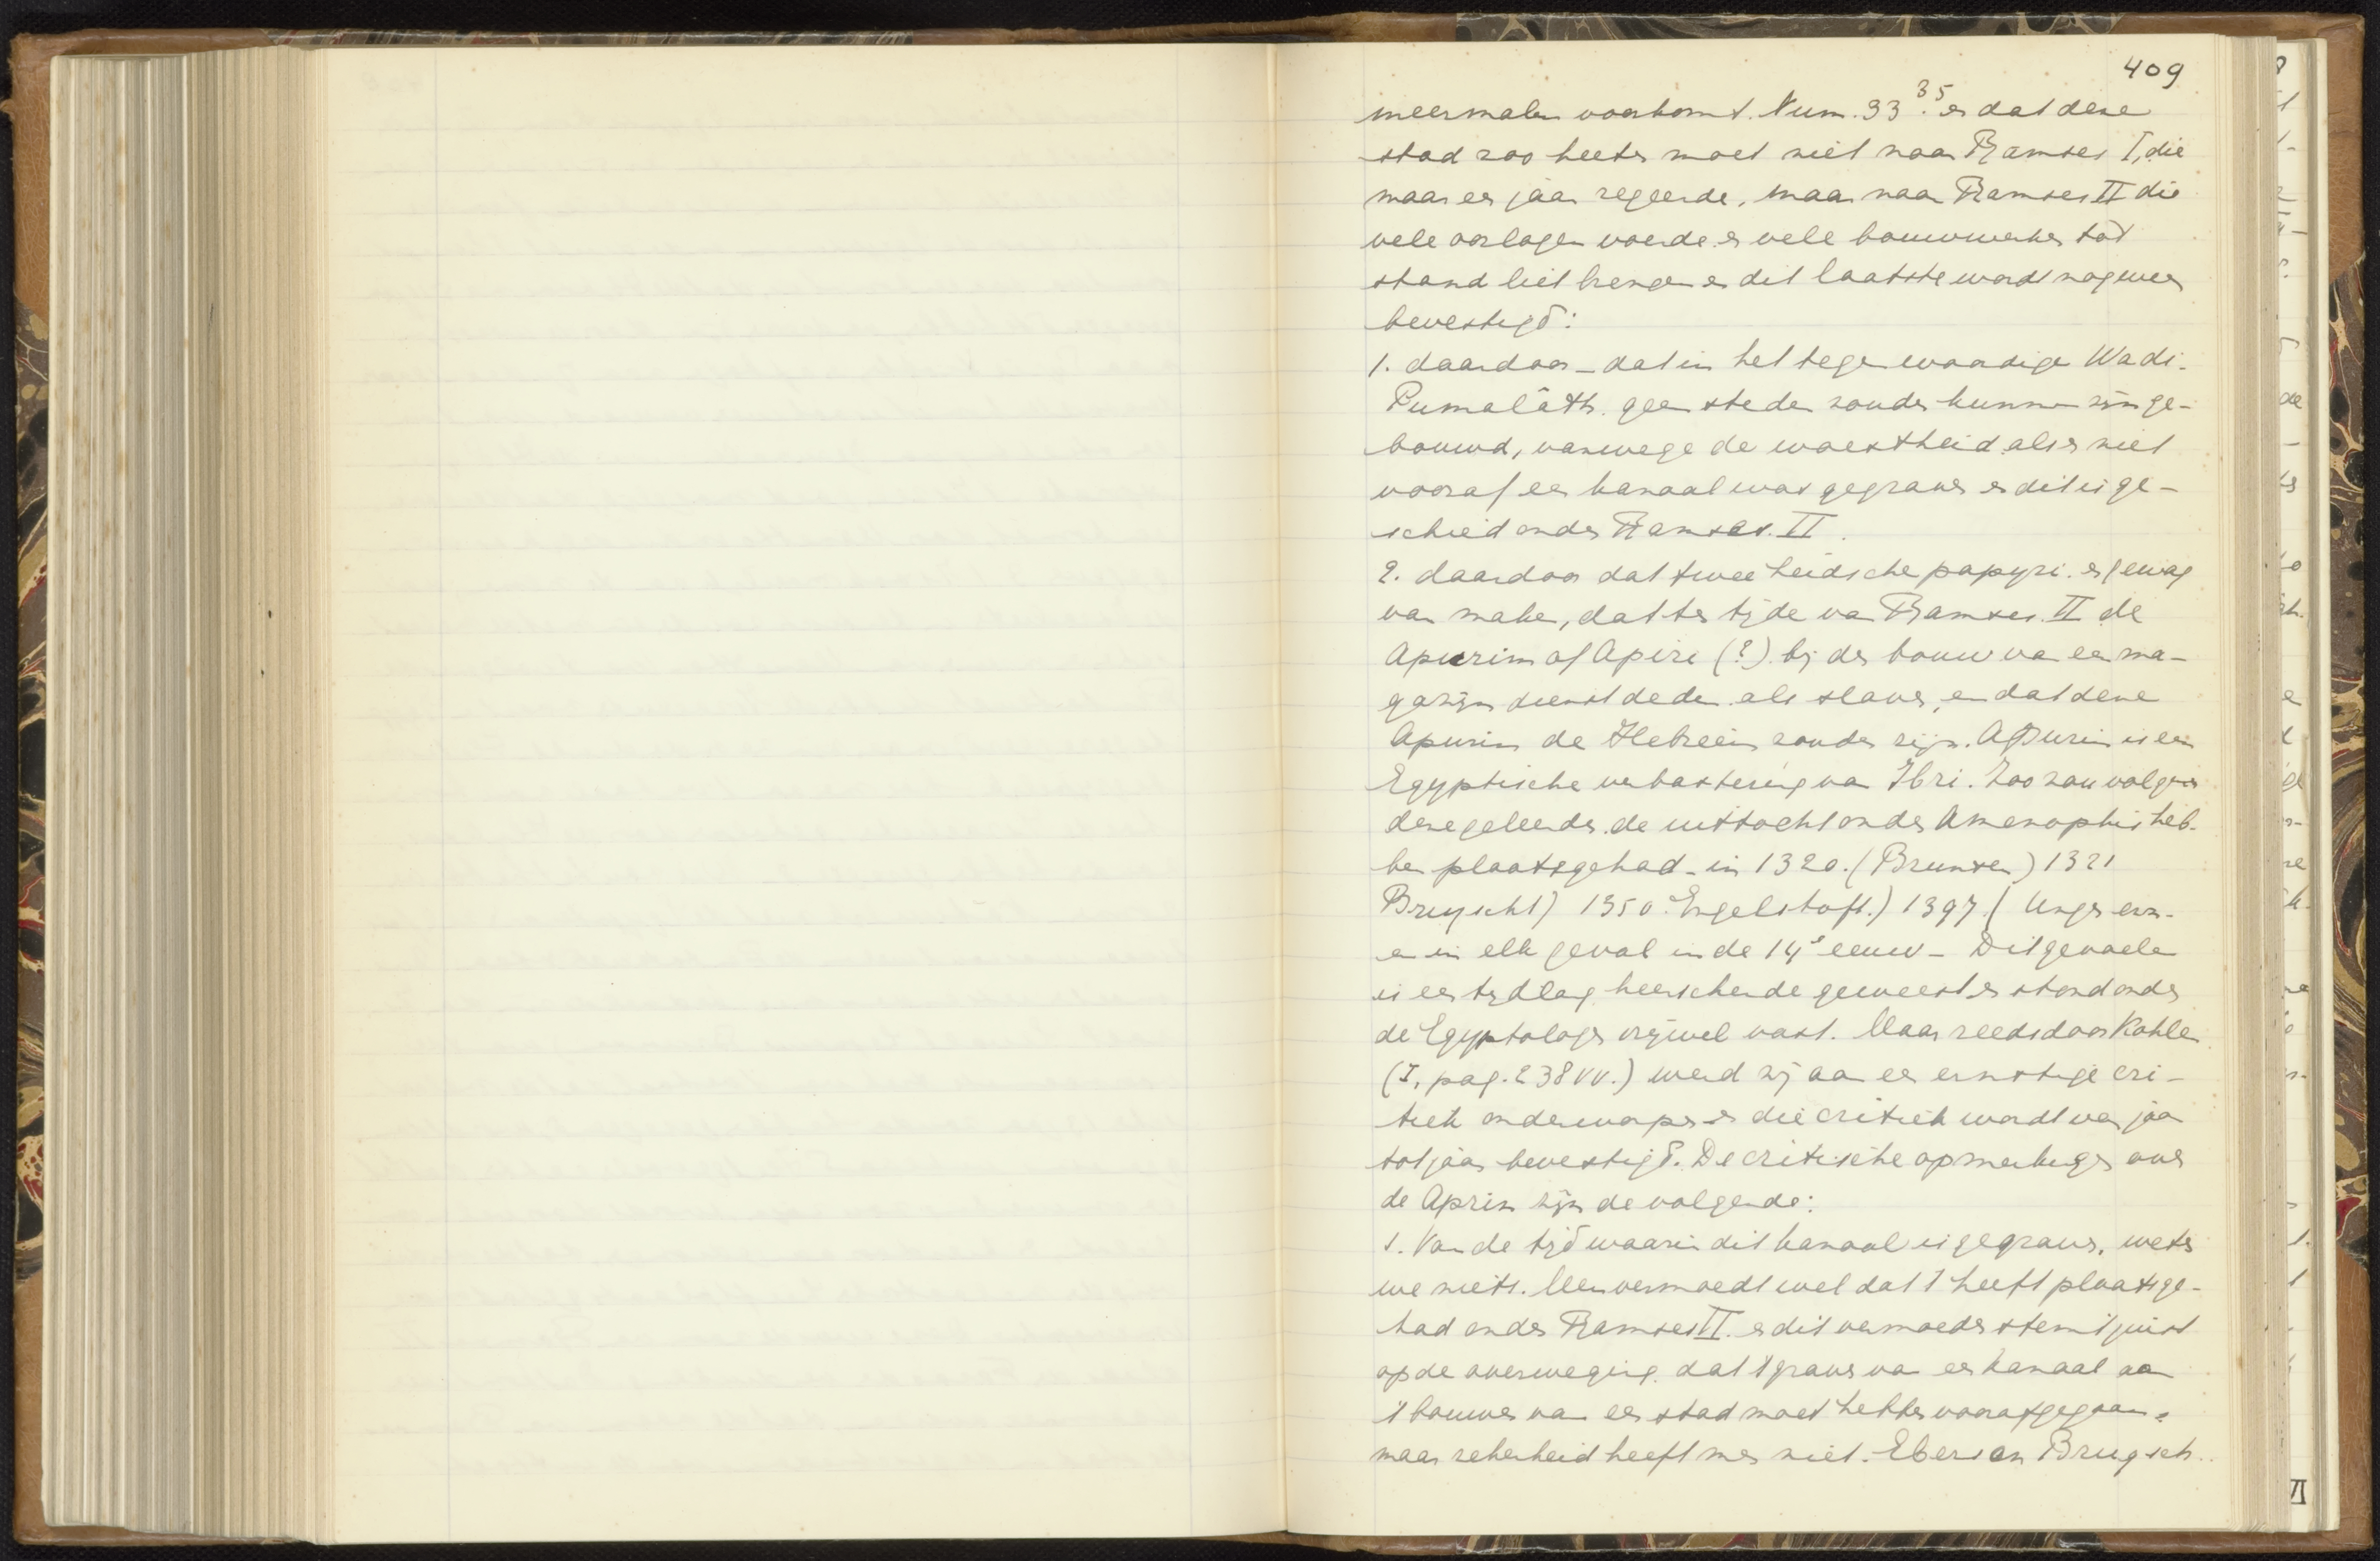 409
meermalen voorkomt. Num. 33 35. en dat deze
stad zoo heette moet niet naar Ramses I, die
maar een jaar regeerde, maar naar Ramses II die
vele oorlogen voerde en vele bouwwerken tot
stand liet brengen en dit laatste wordt nog meer
bevestigd:
1. daardoor - dat in het tegenwoordige Wadi-
Tumalâth. geen steden zouden kunnen zijn ge-
bouwd, vanwege de woestheid als er niet
vooraf een kanaal was gegraven en dit is ge-
schied onder Ramses. II.
2. daardoor dat twee Leidsche papyri. er gewag
van maken, dat ten tijde van Ramses. II de
Apurim of Apiri (?). bij den bouw van een ma-
gazijn dienst deden als slaven, en dat deze
Apurim de Hebreën zouden zijn. Apurim is een
Egyptische verbastering van Ibri. Zoo zou volgens
deze geleerden de uittocht onder Amenophis heb-
ben plaatsgehad - in 1320. (Brunsen) 1321
Brugscht) 1350. Engelstoft.) 1397. (Unger enz-
en in elk geval in de 14e eeuw - Dit gevoelen
is een tijdlang heerschende geweest en stond onder
de Egyptologen vrijwel vast. Maar reeds door Kohler
(I, pag. 238 vv.) werd zij aan een ernstige cri-
tiek onderworpen en die critiek wordt van jaar
tot jaar bevestigd. De critische opmerkingen over
de Aprim zijn de volgende:
1. Van de tijd waarin dit kanaal is gegraven, weten
we niets. Men vermoedt wel dat 't heeft plaatsge-
had onder Ramses II. en dit vermoeden stemt juist
op de overweging. dat 't graven van een kanaal aan
't bouwen van een stad moet hebben voorafgegaan.
maar zekerheid heeft men niet. Ebers en Brugsch.
VI